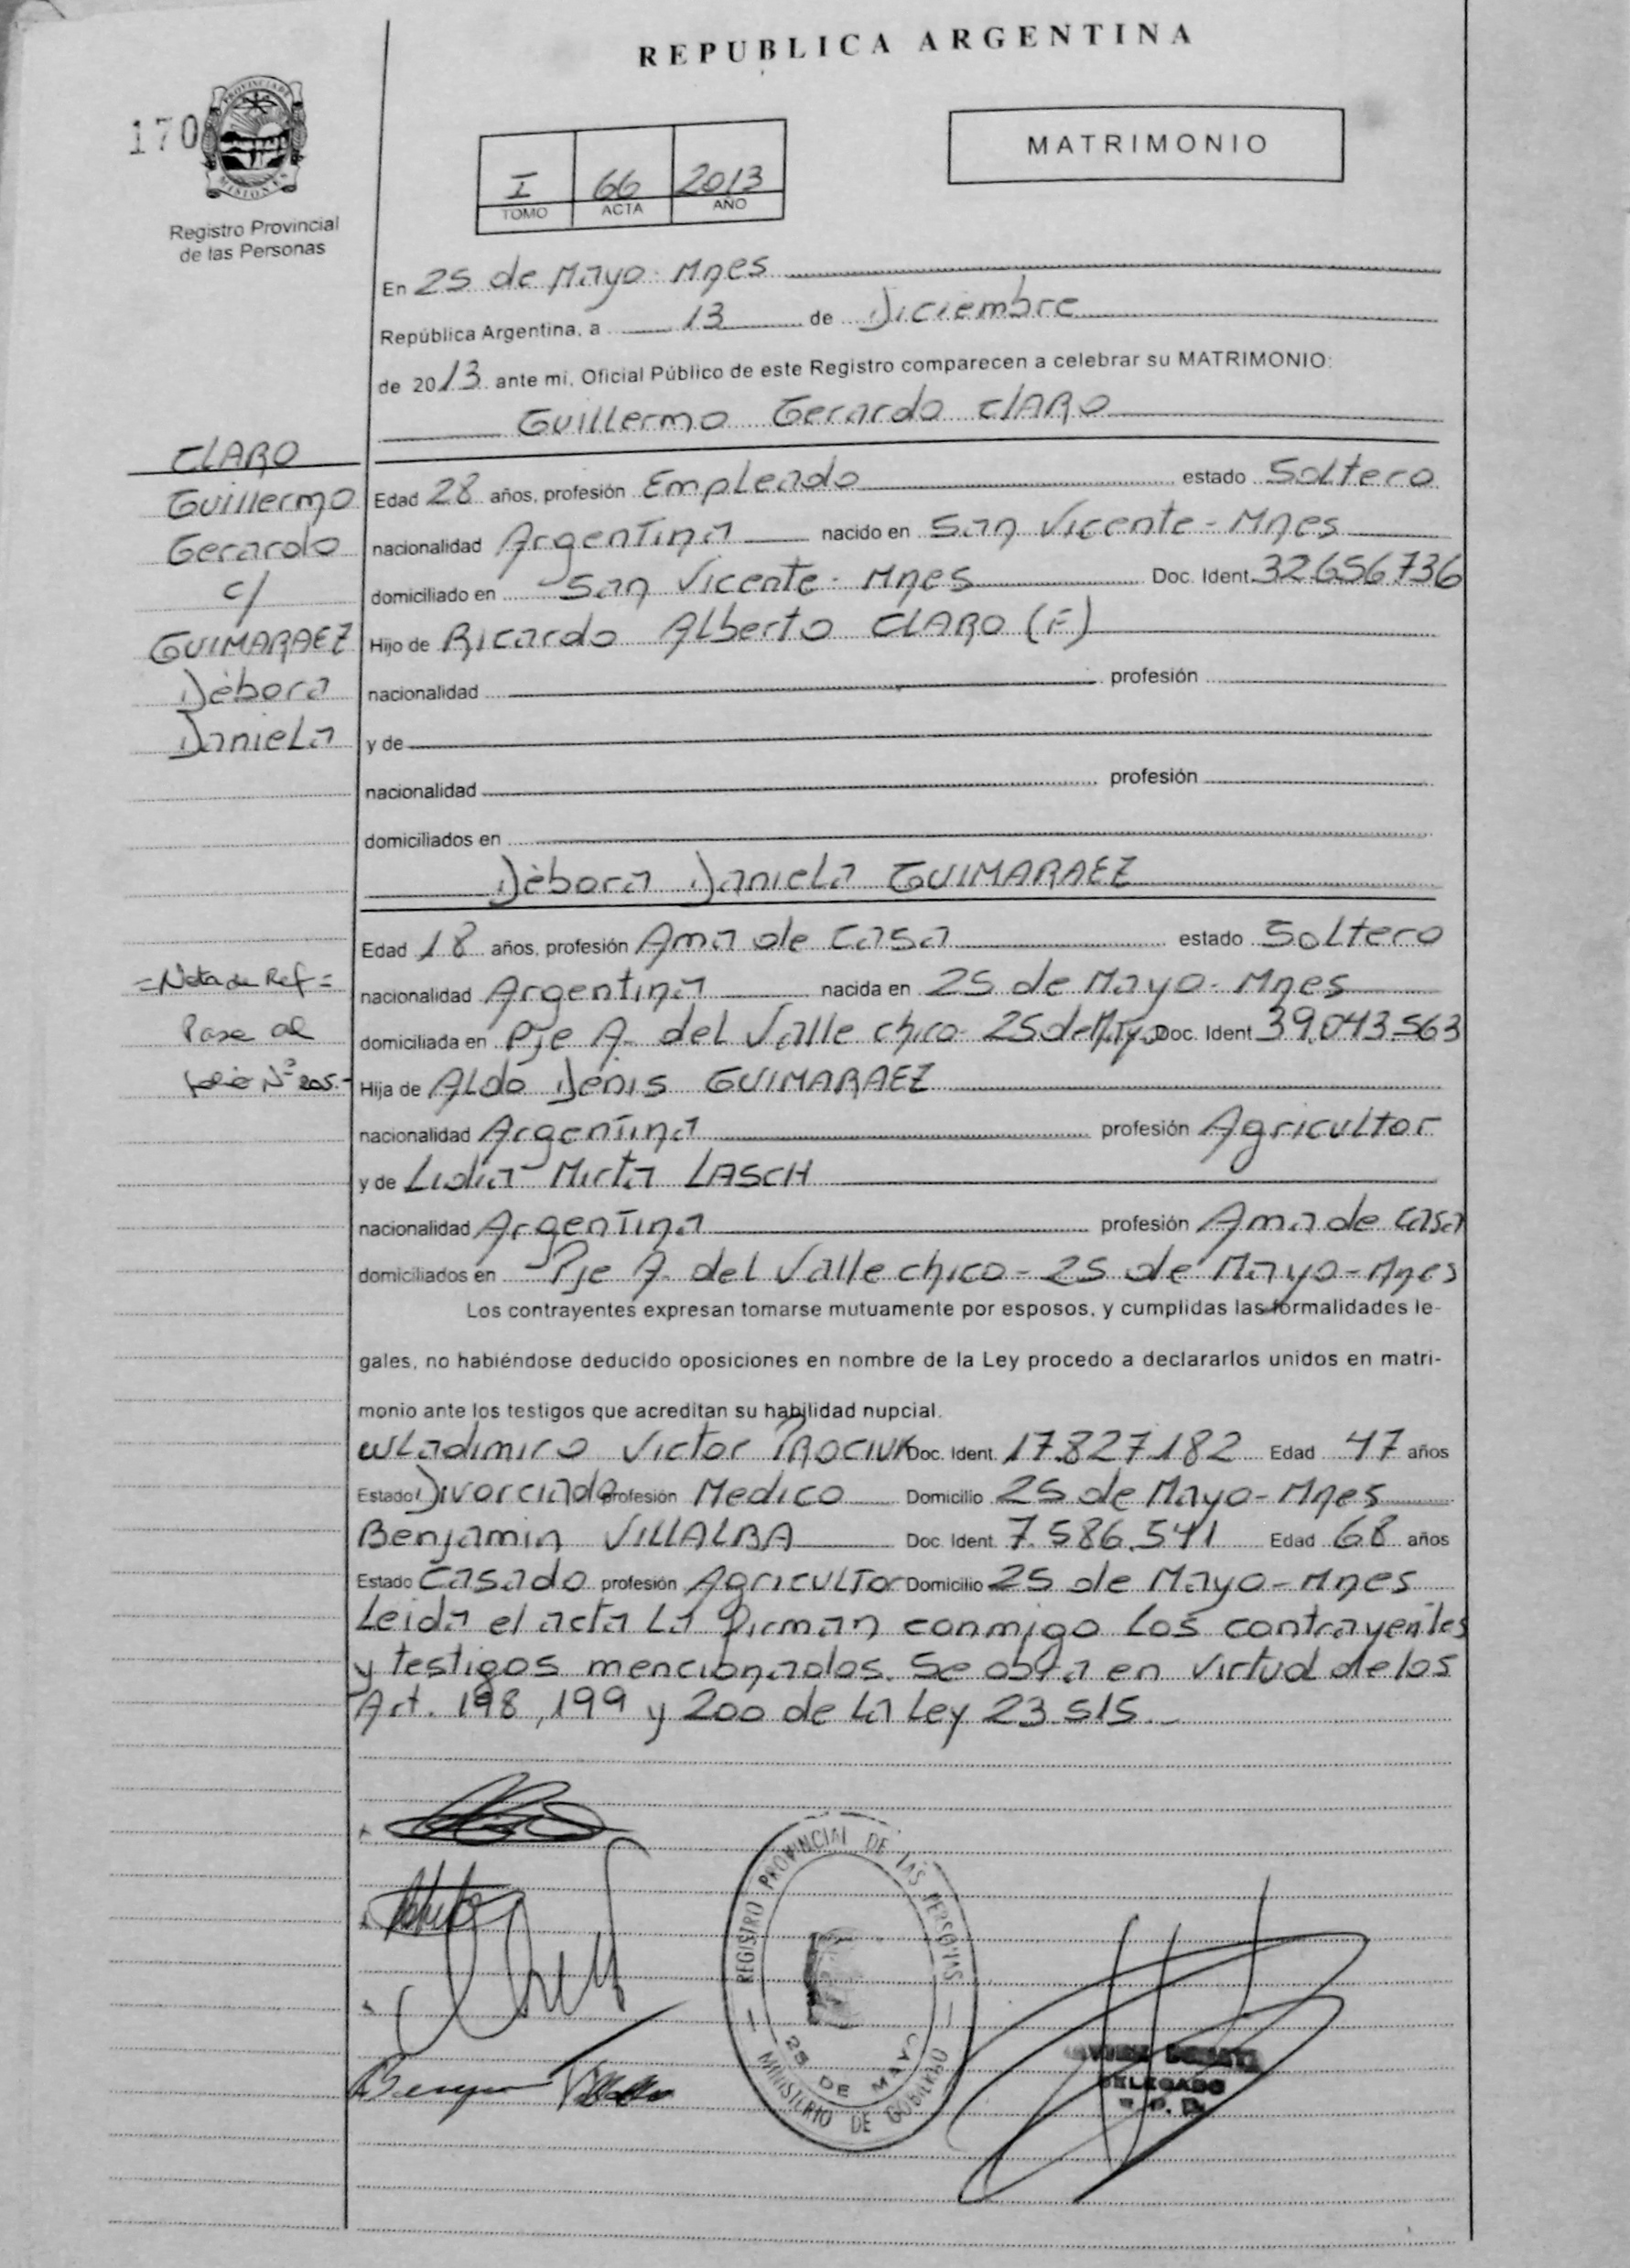 REPUBLICA ARGENTINA
170
PROVINCIA DE
MISIONES
Registro Provincial
de las Personas
MATRIMONIO
I 66 2013
TOMO ACTA AÑO
En 25 de Mayo - Mnes
República Argentina, a 13 de Diciembre
de 2013 ante mi, Oficial Público de este Registro comparecen a celebrar su MATRIMONIO:
Guillermo Gerardo CLARO
CLARO
Guillermo
Gerardo
c/
GUIMARAEZ
Débora
Daniela
Edad 28 años, profesión Empleado estado Soltero
nacionalidad Argentina nacido en San Vicente - Mnes
domiciliado en San Vicente - Mnes Doc. Ident. 32.656.736
Hijo de Ricardo Alberto CLARO (F)
nacionalidad profesión
y de
nacionalidad profesión
domiciliados en
Débora Daniela GUIMARAEZ
Edad 18 años, profesión Ama de Casa estado Soltero
nacionalidad Argentina nacida en 25 de Mayo - Mnes
domiciliada en Pje A. del Valle chico - 25 de Mayo Doc. Ident. 39.043.563
Hija de Aldo Denis GUIMARAEZ
nacionalidad Argentina profesión Agricultor
y de Lidia Mirta LASCH
nacionalidad Argentina profesión Ama de Casa
domiciliados en Pje A. del Valle chico - 25 de Mayo - Mnes
= Nota de Ref =
Pase al
folio Nº 205.-
Los contrayentes expresan tomarse mutuamente por esposos, y cumplidas las formalidades le-
gales, no habiéndose deducido oposiciones en nombre de la Ley procedo a declararlos unidos en matri-
monio ante los testigos que acreditan su habilidad nupcial.
Wladimiro Victor PROCIUK Doc. Ident. 17.827.182 Edad 47 años
Estado Divorciado profesión Medico Domicilio 25 de Mayo - Mnes
Benjamin VILLALBA Doc. Ident. 7.586.541 Edad 68 años
Estado Casado profesión Agricultor Domicilio 25 de Mayo - Mnes
Leida el acta La firman conmigo Los contrayentes
y testigos mencionados. Se obra en virtud de los
Art. 198, 199 y 200 de La Ley 23.515.-
REGISTRO PROVINCIAL DE LAS PERSONAS
25 DE MAYO
MINISTERIO DE GOBIERNO
DELEGADO